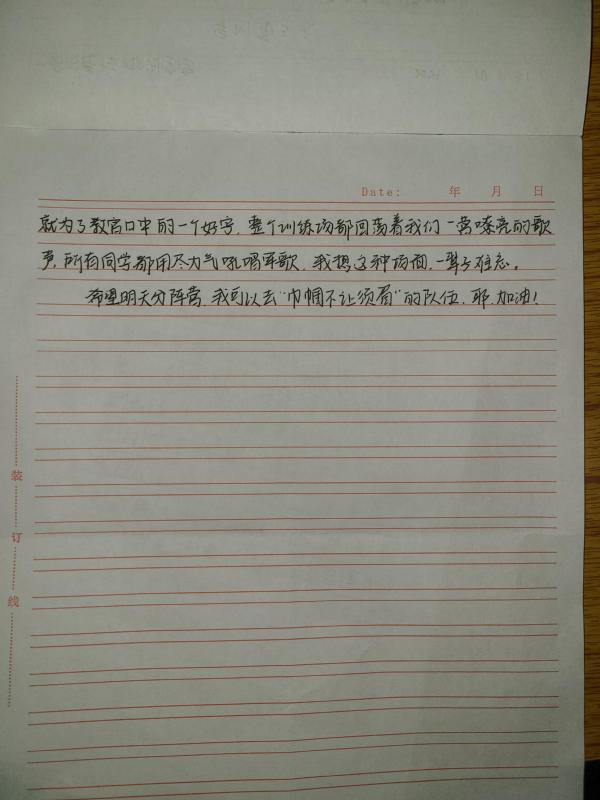 Date: 年 月 日
就为了教官口中的一个好字,整个训练场都回荡着我们一营嘹亮的歌
声,所有同学都用尽力气吼唱军歌,我想这种场面,一辈子难忘。
希望明天分阵营,我可以去“巾帼不让须眉”的队伍,耶,加油!
装
订
线